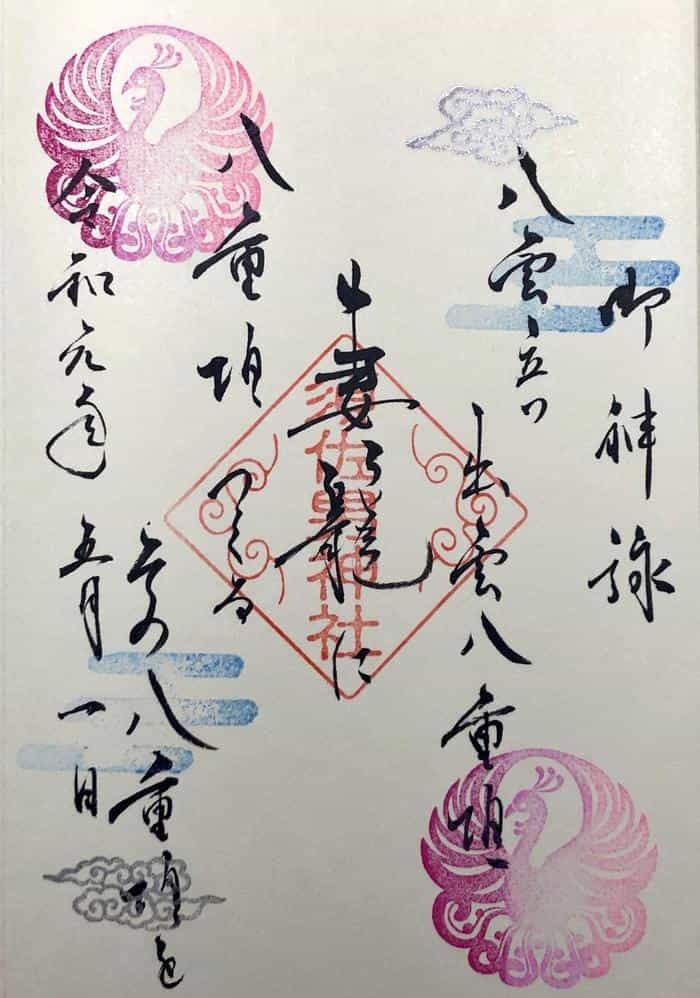 御神詠
八雲立つ
出雲八重垣
妻籠に
須佐男神社
八重垣
つくる
その八重垣を
令和元年五月一日